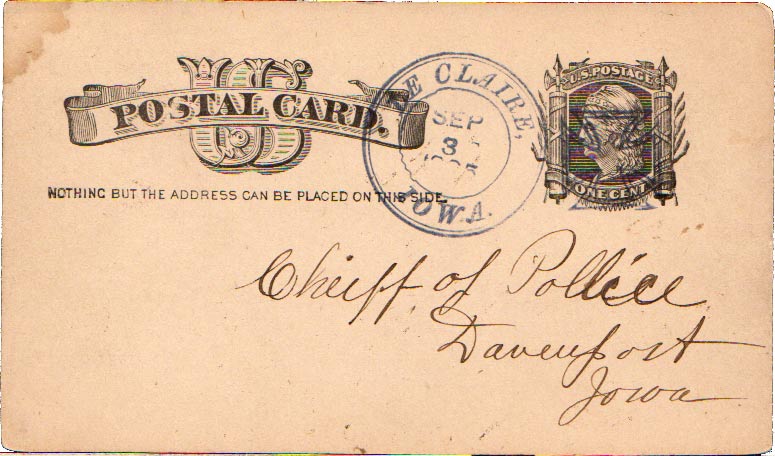 US
POSTAL CARD.
NOTHING BUT THE ADDRESS CAN BE PLACED ON THIS SIDE.
E CLAIRE,
SEP
3
IOWA.
U.S. POSTAGE
ONE CENT
Cheiff of Pollice
Davenport
Iowa